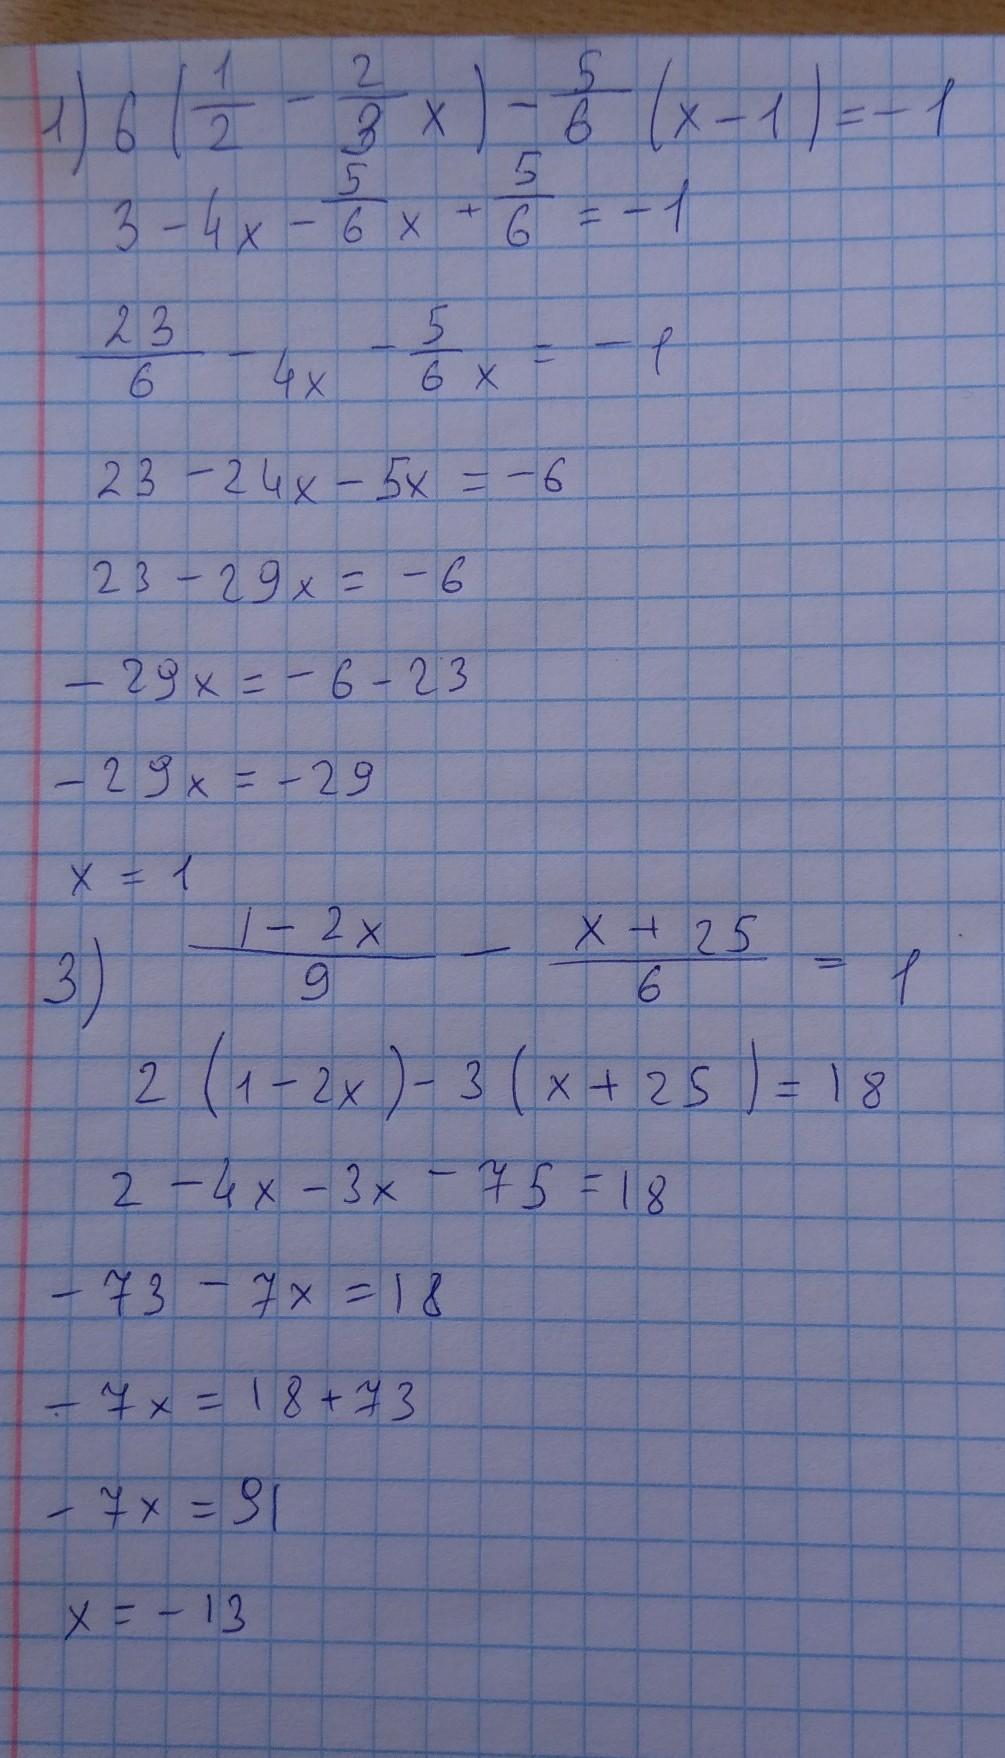 1) 6 (1/2 - 2/3 x) - 5/6 (x - 1) = - 1
3 - 4x - 5/6 x + 5/6 = - 1
23/6 - 4x - 5/6 x = - 1
23 - 24x - 5x = - 6
23 - 29x = - 6
- 29x = - 6 - 23
- 29x = - 29
x = 1
3) (1 - 2x)/9 - (x + 25)/6 = 1
2 (1 - 2x) - 3 (x + 25) = 18
2 - 4x - 3x - 75 = 18
- 73 - 7x = 18
- 7x = 18 + 73
- 7x = 91
x = - 13